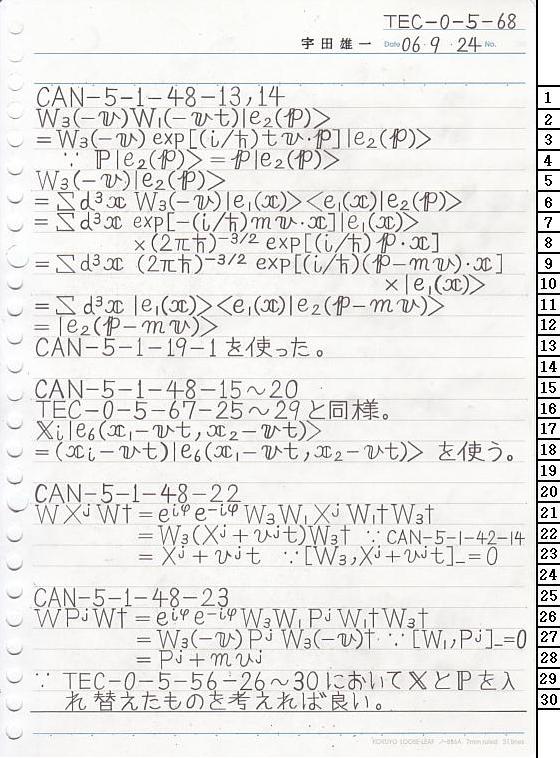 TEC-0-5-68
宇田雄一 Date 06・9・24 No.
CAN-5-1-48-13,14
W₃(-𝕧)W₁(-𝕧t)|e₂(𝕡)>
=W₃(-𝕧) exp[(i/ħ)t𝕧·𝕡]|e₂(𝕡)>
∵ ℙ|e₂(𝕡)>=𝕡|e₂(𝕡)>
W₃(-𝕧)|e₂(𝕡)>
=∑d³x W₃(-𝕧)|e₁(𝕩)><e₁(𝕩)|e₂(𝕡)>
=∑d³x exp[-(i/ħ)m𝕧·𝕩]|e₁(𝕩)>
×(2πħ)⁻³/² exp[(i/ħ)𝕡·𝕩]
=∑d³x (2πħ)⁻³/² exp[(i/ħ)(𝕡-m𝕧)·𝕩]
×|e₁(𝕩)>
=∑d³x |e₁(𝕩)><e₁(𝕩)|e₂(𝕡-m𝕧)>
=|e₂(𝕡-m𝕧)>
CAN-5-1-19-1を使った。
CAN-5-1-48-15~20
TEC-0-5-67-25~29と同様。
𝕏ᵢ|e₆(𝕩₁-𝕧t,𝕩₂-𝕧t)>
=(𝕩ᵢ-𝕧t)|e₆(𝕩₁-𝕧t,𝕩₂-𝕧t)> を使う。
CAN-5-1-48-22
WXʲW†=eⁱᵠe⁻ⁱᵠW₃W₁XʲW₁†W₃†
=W₃(Xʲ+vʲt)W₃† ∵CAN-5-1-42-14
=Xʲ+vʲt ∵[W₃,Xʲ+vʲt]₋=0
CAN-5-1-48-23
WPʲW†=eⁱᵠe⁻ⁱᵠW₃W₁PʲW₁†W₃†
=W₃(-𝕧)PʲW₃(-𝕧)† ∵[W₁,Pʲ]₋=0
=Pʲ+mvʲ
∵ TEC-0-5-56-26~30において𝕏とℙを入
れ替えたものを考えれば良い。
KOKUYO LOOSE-LEAF ノ-836A 7mm ruled 31 lines
1
2
3
4
5
6
7
8
9
10
11
12
13
14
15
16
17
18
19
20
21
22
23
24
25
26
27
28
29
30